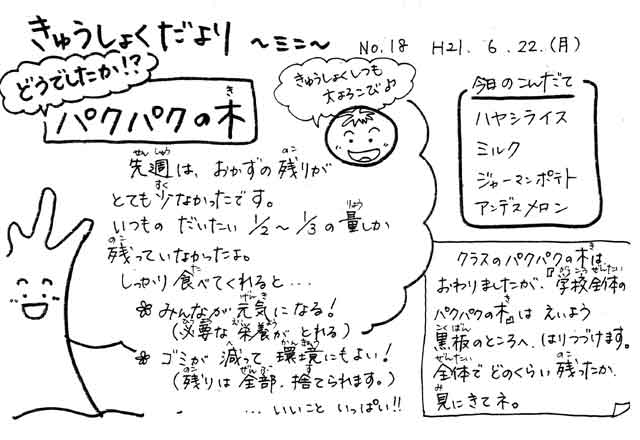 きゅうしょくだより ～ミニ～ No.18 H21. 6. 22. (月)
どうでしたか!?
パクパクの木
きゅうしょくしつも
大よろこびよ
先週は、おかずの残りが
とても少なかったです。
いつもの だいたい 1/2～1/3の量しか
残っていなかったよ。
しっかり食べてくれると…
✽ みんなが元気になる!
(必要な栄養が とれる)
✽ ゴミが 減って 環境にもよい!
(残りは 全部 捨てられます。)
… いいこと いっぱい!!
今日のこんだて
ハヤシライス
ミルク
ジャーマンポテト
アンデスメロン
クラスのパクパクの木は
おわりましたが、『学校全体の
パクパクの木』は えいよう
黒板のところへ、はりつづけます。
全体で どのくらい 残ったか、
見にきてネ。